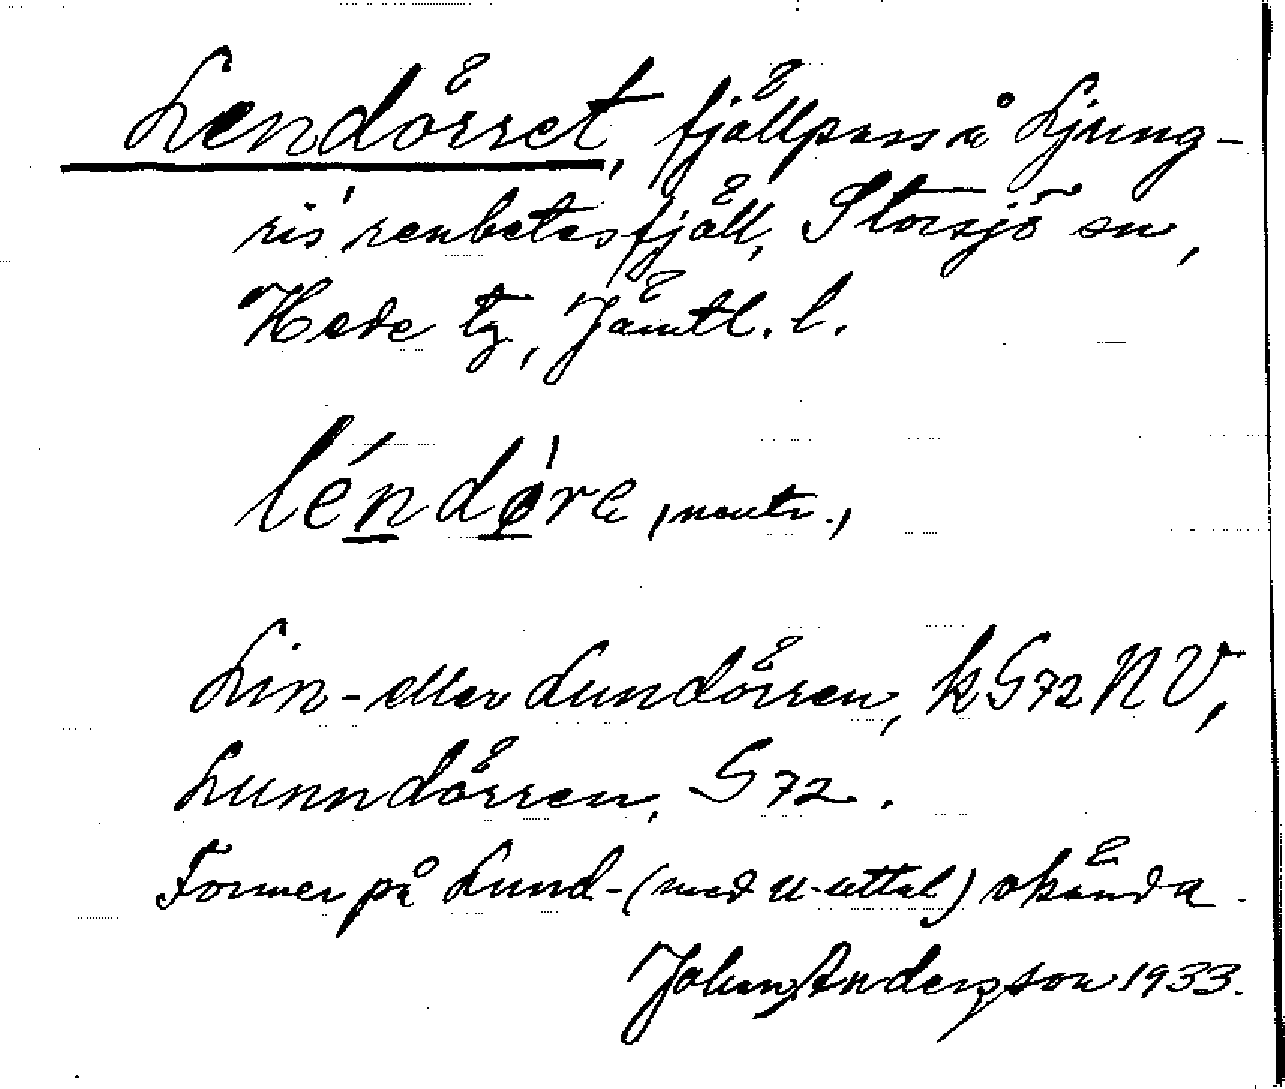 Lendörret, fjällpass å Ljung-
ris' renbetesfjäll, Storsjö sn,
Hede tg, Jämtl. l.
léndøre, neutr.,
Lin- eller Lundörren, k G72 NV,
Lunndörren, G72.
Former på Lund- (med u-uttal) okända.
Johan Anderzson 1933.